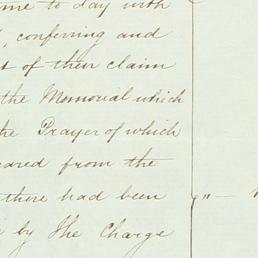 me to day with
, conferring and
t of their claim
the Memorial which
the Prayer of which
eared from the
there had been
by the Charge